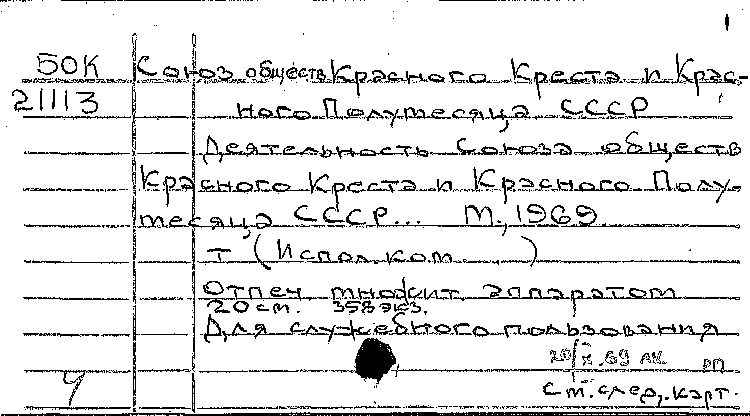 1
50К Союз обществ Красного Креста и Крас-
21113 ного Полумесяца СССР
Деятельность Союза обществ
Красного Креста и Красного Полу-
месяца СССР... М., 1969
т (Исполком )
Отпеч. множит. аппаратом
20 см. 358 экз.
Для служебного пользования
20/X.69 лк вп
У см. след. карт.